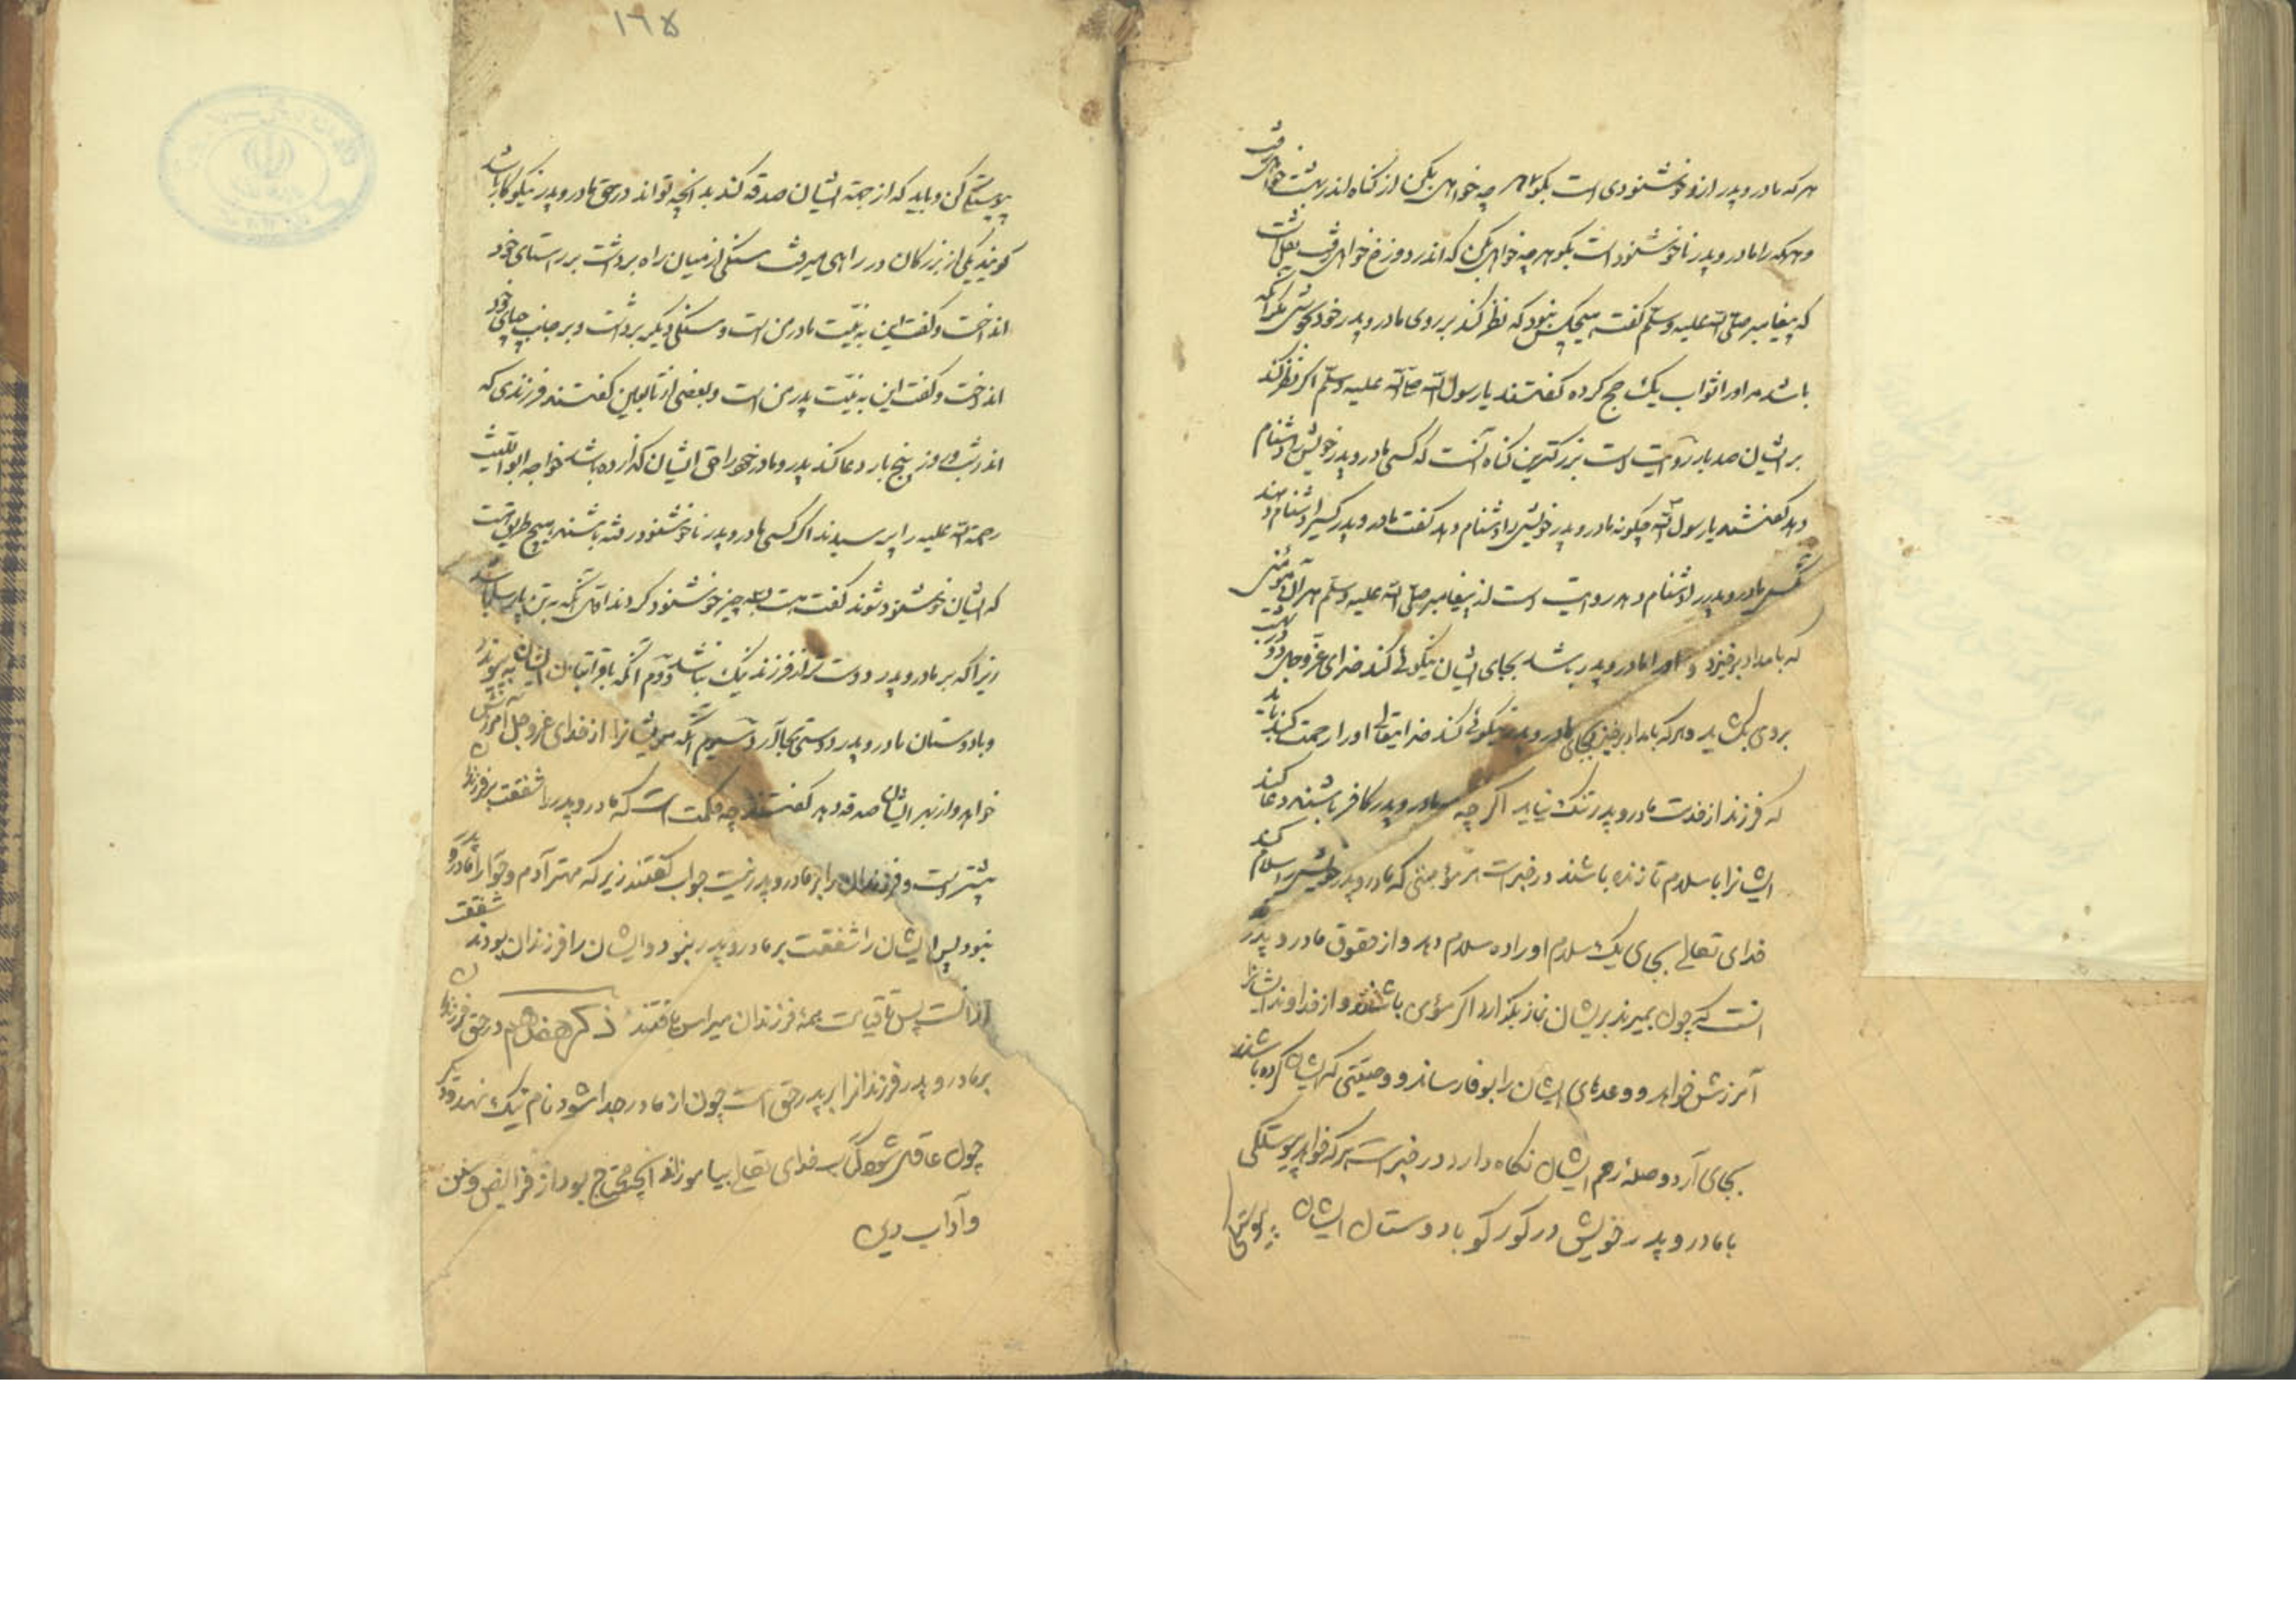 هر که مادر و پدر ازو خوشنودی است بگو هر چه خواهی بکن از گناه اندر بهشت خواهی رفت
و هرکه را مادر و پدر ناخوشنود است بگو هرچه خواهی بکن که اندر دوزخ خواهی رفت
که پیغامبر صلی الله علیه وسلم گفت هیچکس نبود که نظر کند بر روی مادر و پدر خود مگر آنکه
باشد مر او را ثواب یک حج کرده گفتند یا رسول الله صلی الله علیه وسلم اگر نظر کند
بر ایشان صد بار روایت است بزرکترین گناه آنست که کسی مادر و پدر خویش را دشنام
دهد گفتند یا رسول الله چگونه مادر و پدر خویش را دشنام دهد گفت مادر و پدر کسی را دشنام دهد
مادر و پدر را دشنام دهد روایت است از پیغامبر صلی الله علیه وسلم هر آن مؤمنی
که بامداد برخیزد و او را مادر و پدر باشد بجای ایشان نیکوئی کند خدای عز و جل دو در بهشت
بر وی بگشاید و هرکه بامداد برخیزد بجای مادر و پدر نیکوئی کند خدایتعالی او را رحمت کند باید
که فرزند از خدمت مادر و پدر ننگ نیاید اگر چه مادر و پدر کافر باشند دعا کند
ایشانرا باسلام تا زنده باشند در خبر است هر مؤمنی که مادر و پدر خویش را سلام کند
خدای تعالی بجای یک سلام او را ده سلام دهد و از حقوق مادر و پدر
آنست که چون بمیرند بریشان نماز بگذارد اگر مؤمن باشند و از خداوند ایشانرا
آمرزش خواهد و وعدهای ایشان را بوفا رساند و وصیتی که ایشان کرده باشند
بجای آرد و صلهٔ رحم ایشان نگاه دارد در خبر است هر که خواهد پیوستگی
با مادر و پدر خویش در گور گو با دوستان ایشان پیوستگی
پیوستگی کن و باید که از جهة ایشان صدقه کند بدانچه تواند در حق مادر و پدر نیکوکار باشد
گویند یکی از بزرگان در راهی میرفت سنگی از میان راه برداشت بر راستای خود
انداخت و گفت این به نیت مادر من است و سنگی دیگر برداشت و بر جانب چپ خود
انداخت و گفت این به نیت پدر من است و بعضی از تابعین گفتند فرزندی که
اندر شب و روز پنج بار دعا کند پدر و مادر خود را حق ایشان گذارده باشد خواجه ابو اللیث
رحمة الله علیه را پرسیدند اگر کسی مادر و پدر ناخوشنود رفته باشند هیچ طریق هست
که ایشان خوشنود شوند گفت هست بسه چیز خوشنود گردند اول آنکه به تن پارسا باشد
زیرا که بر مادر و پدر دوست تر از فرزند نیک نباشد دوم آنکه با قرابتان ایشان به پیوندد
و با دوستان مادر و پدر دوستی بجا آرد سیوم آنکه مر ایشانرا از خدای عز و جل آمرزش
خواهد و از بهر ایشان صدقه دهد گفتند چه حکمت است که مادر و پدر را شفقت بر فرزندان
بیشتر است و فرزندان را بر مادر و پدر نیست جواب گفتند زیرکه مهتر آدم و حوا را مادر و پدر
نبود پس ایشان را شفقت بر مادر و پدر نبود و ایشان را فرزندان بودند شفقت
ازانست پس تا قیامت همهٔ فرزندان میراث یافتند ذکر هفدهم در حق فرزندان
بر مادر و پدر فرزندانرا بر پدر حق است چون از مادر جدا شود نام نیک نهد و دیگر
چون عاقل شود کتاب خدای تعالی بیاموزاند آنچه محتاج بود از فرائض و سنن
و آداب دین
۱٦۵